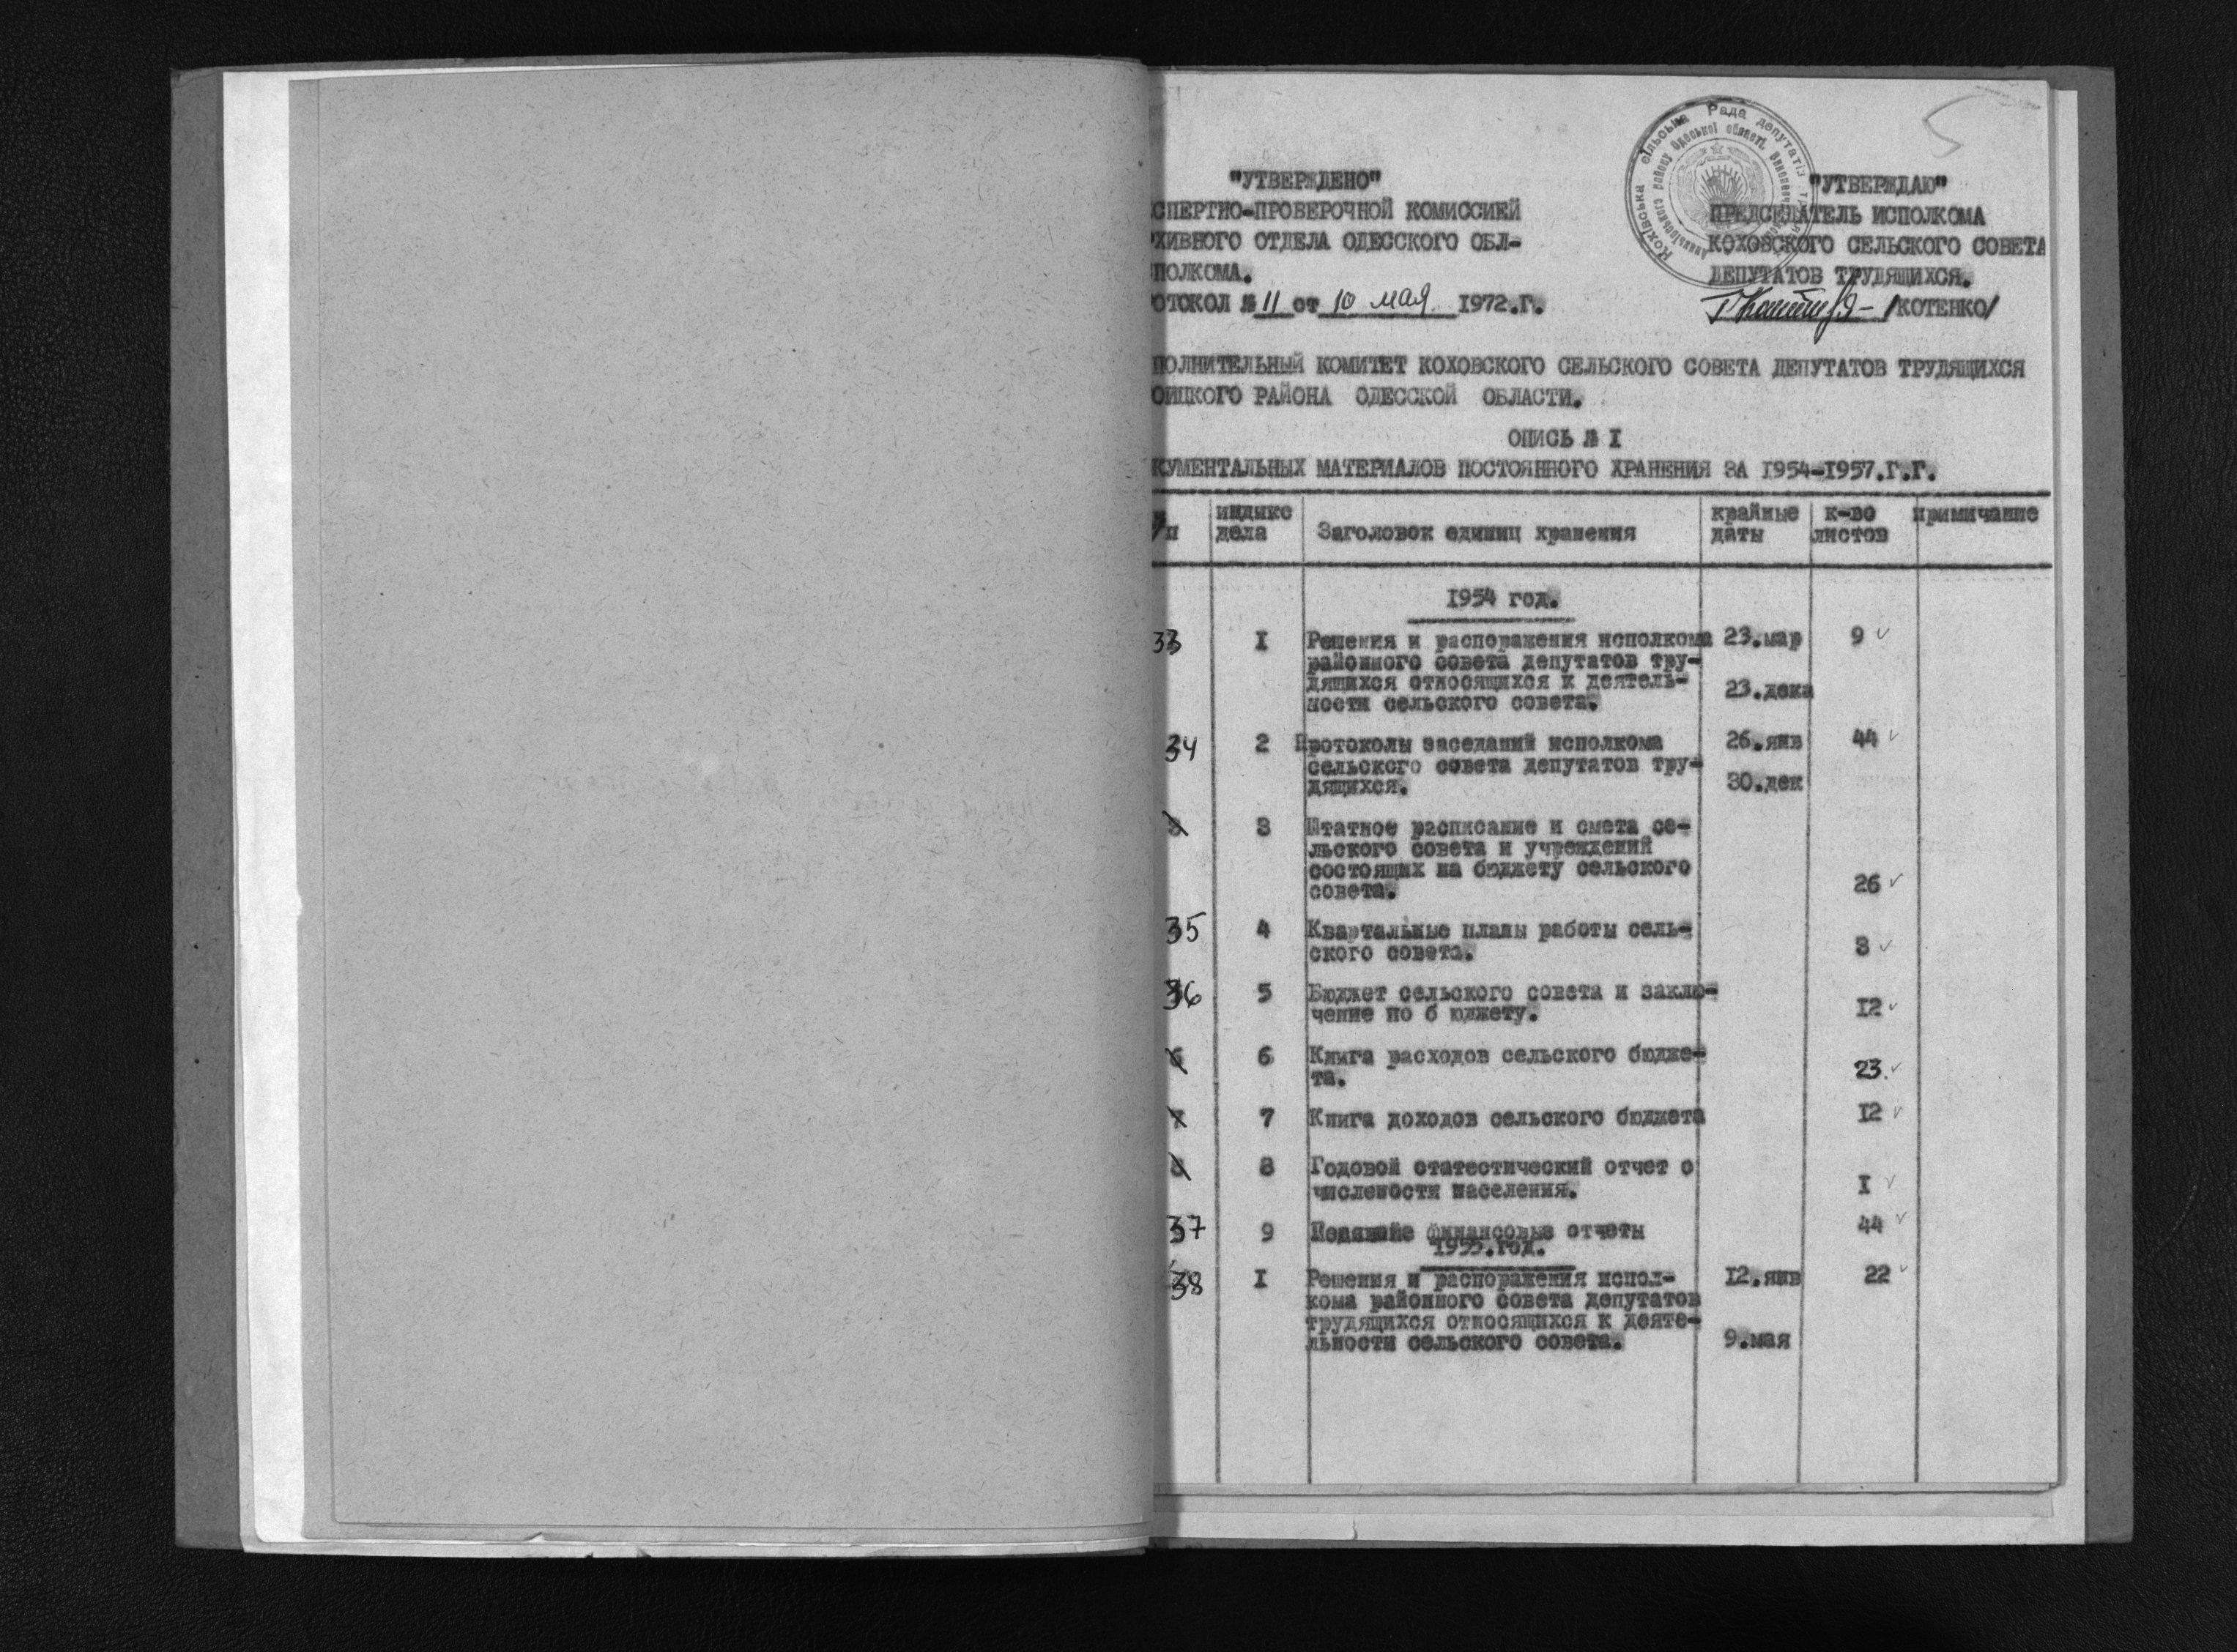 5
Кохівська сільська Рада депутатів
району Одеської області
"УТВЕРЖДЕНО"
СПЕРТНО-ПРОВЕРОЧНОЙ КОМИССИЕЙ
РХИВНОГО ОТДЕЛА ОДЕССКОГО ОБЛ-
ПОЛКОМА.
ОТОКОЛ № 11 от 10 мая 1972.Г.
"УТВЕРЖДАЮ"
ПРЕДСЕДАТЕЛЬ ИСПОЛКОМА
КОХОВСКОГО СЕЛЬСКОГО СОВЕТА
ДЕПУТАТОВ ТРУДЯЩИХСЯ.
/КОТЕНКО/
ПОЛНИТЕЛЬНЫЙ КОМИТЕТ КОХОВСКОГО СЕЛЬСКОГО СОВЕТА ДЕПУТАТОВ ТРУДЯЩИХСЯ
ОИЦКОГО РАЙОНА ОДЕССКОЙ ОБЛАСТИ.
ОПИСЬ № I
КУМЕНТАЛЬНЫХ МАТЕРИАЛОВ ПОСТОЯННОГО ХРАНЕНИЯ ЗА 1954-1957.Г.Г.
/п индыкс дела Заголовок единиц хранения крайные даты к-во листов примичание
1954 год.
33 I Решения и распоражения исполкома 23.мар 9
районного совета депутатов тру-
дящихся относящихся к деятель- 23.дека
ности сельского совета.
34 2 Протоколы заседаний исполкома 26.янв 44
сельского совета депутатов тру-
дящихся. 30.дек
3 3 Штатное расписание и смета се-
льского совета и учреждений
состоящих на бюджету сельского
совета. 26
35 4 Квартальные планы работы сель-
ского совета. 3
36 5 Бюджет сельского совета и заклю-
чение по б юджету. 12
6 6 Книга расходов сельского бюдже-
та. 23.
7 7 Книга доходов сельского бюджета 12
8 8 Годовой статестический отчет о
числености населения. I
37 9 финансовые отчеты 44
1955.год.
38 I Решения и распоражения испол- 12.янв 22
кома районного совета депутатов
трудящихся относящихся к деяте-
льности сельского совета. 9.мая